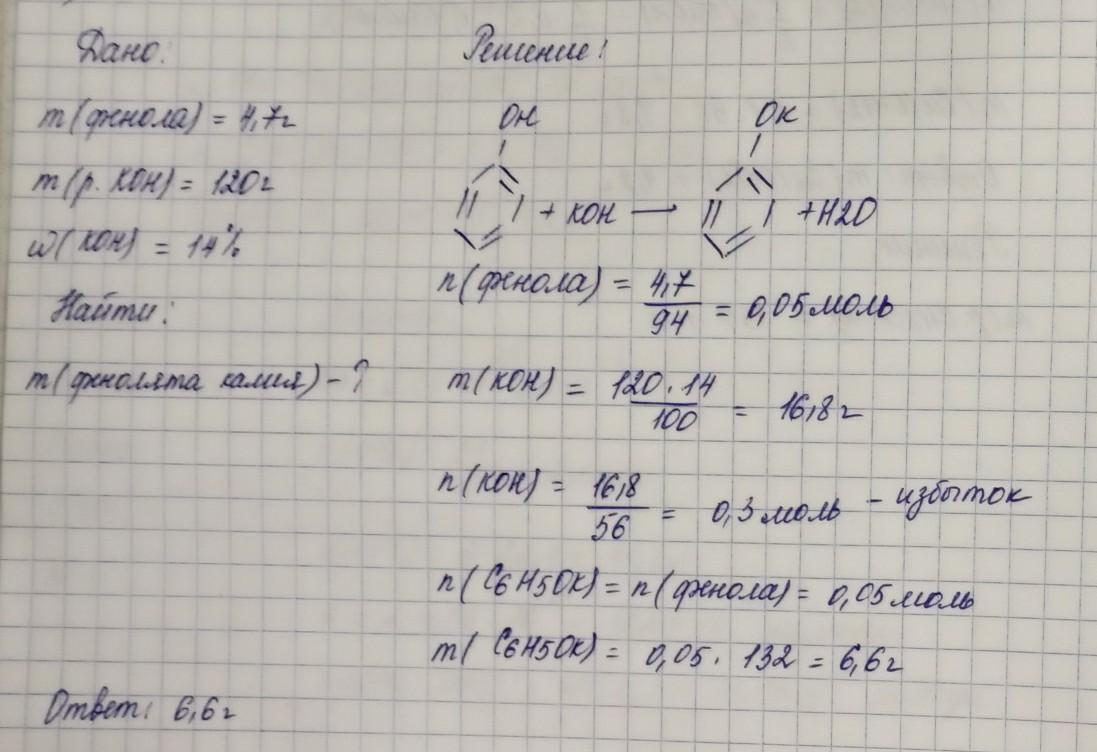 Дано:
m(фенола) = 4,7г
m(р. KOH) = 120г
ω(KOH) = 14%
Найти:
m(фенолята калия) - ?
Решение:
OH OK
+ KOH → + H2O
n(фенола) = 4,7/94 = 0,05 моль
m(KOH) = 120·14/100 = 16,8г
n(KOH) = 16,8/56 = 0,3 моль - избыток
n(C6H5OK) = n(фенола) = 0,05 моль
m(C6H5OK) = 0,05 · 132 = 6,6г
Ответ: 6,6г